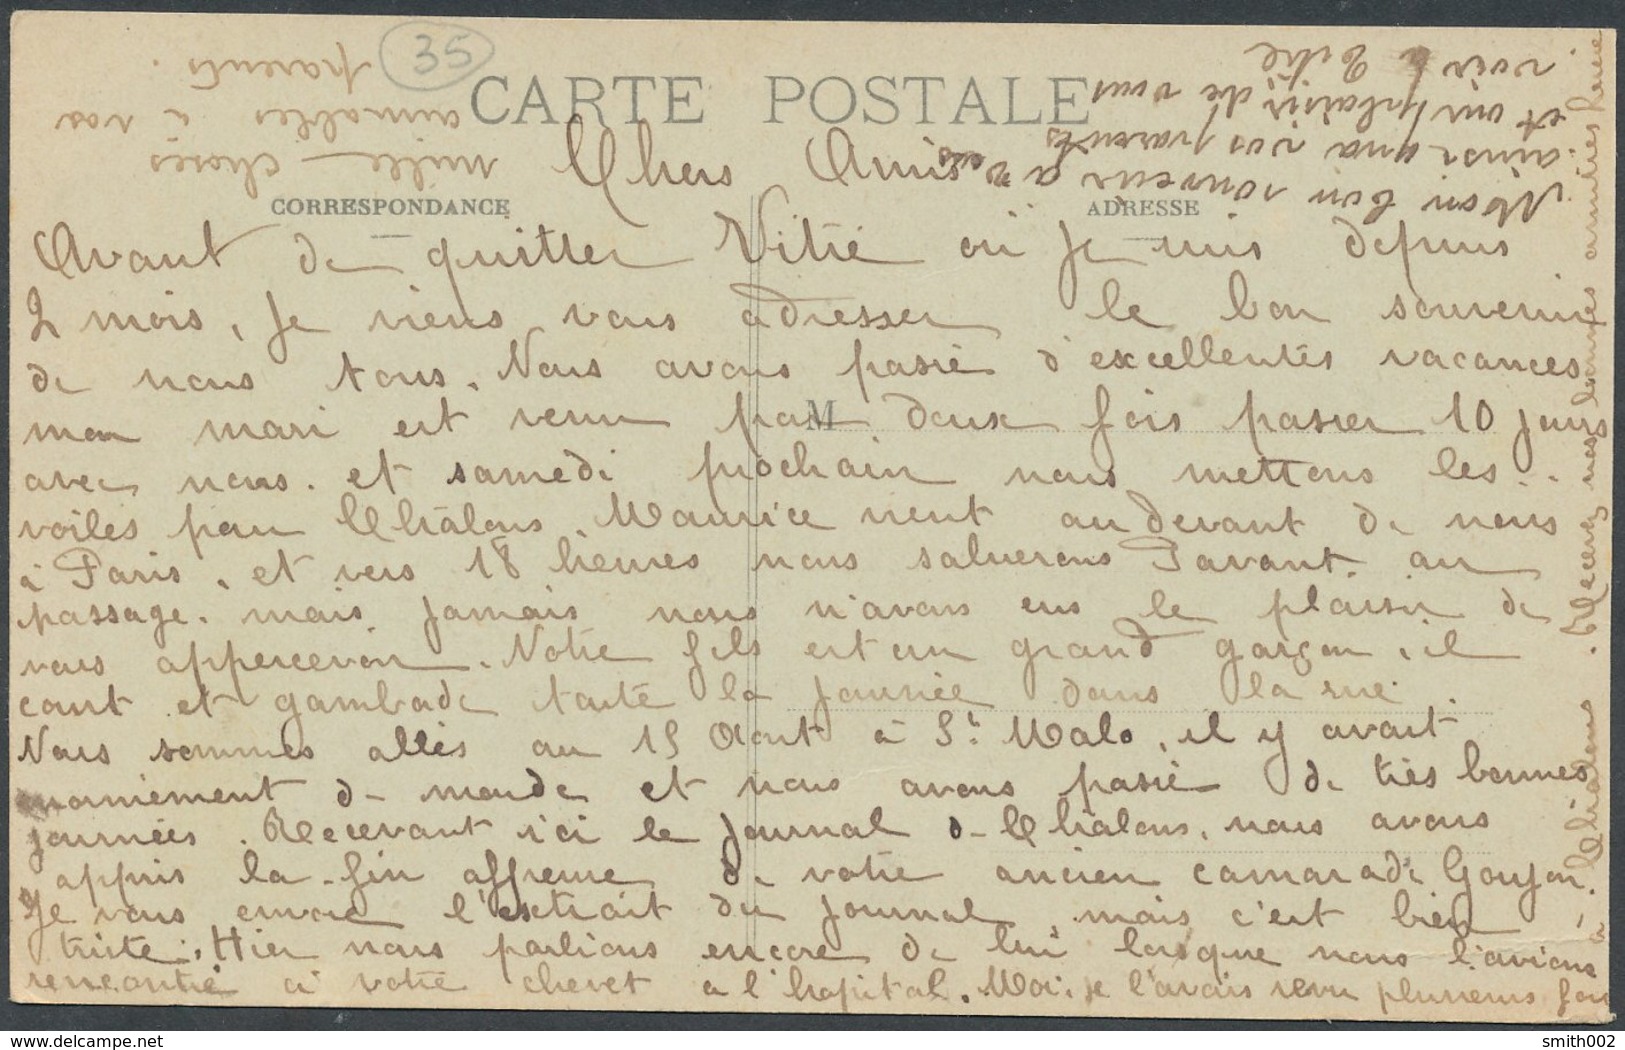 35
CARTE POSTALE
Chers Amis
CORRESPONDANCE
ADRESSE
Avant de quitter Vitré où je suis depuis
2 mois, je viens vous adresser le bon souvenir
de nous tous. Nous avons passé d'excellentes vacances
mon mari est venu par deux fois passer 10 jours
M
avec nous. et samedi prochain nous mettons les
voiles pour Châlons. Maurice vient au devant de nous
à Paris, et vers 18 heures nous saluerons Pavant. au
passage. mais jamais nous n'avons eus le plaisir de
vous appercevoir. Notre fils est un grand garçon, il
court et gambade toute la journée dans la rue.
Nous sommes allés au 15 Août à St Malo, il y avait
de monde et nous avons passé de très bonnes
journées. Recevant ici le journal de Châlons, nous avons
appris la fin affreuse de votre ancien camarade Goujon.
Je vous envoie l'extrait du journal mais c'est bien
triste. Hier nous parlions encore de lui lorsque nous l'avions
rencontré à votre chevet a l'hopital. Moi, je l'avais revu plusieurs fois
à Châlons. Recevez nos bonnes amitiés Renée
Mon bon souvenir à vous
ainsi qu'a vos parents
et au plaisir de vous
voir à Vitré
mille choses
aimables à vos
parents.